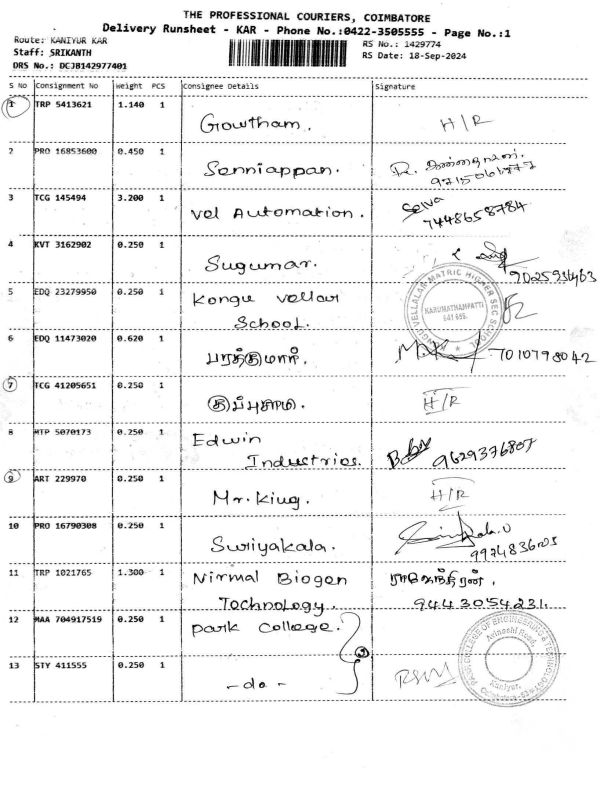 THE PROFESSIONAL COURIERS, COIMBATORE
Delivery Runsheet - KAR - Phone No.:0422-3505555 - Page No.:1
Route: KANIYUR KAR
RS No.: 1429774
Staff: SRIKANTH
RS Date: 18-Sep-2024
DRS No.: DCJB142977401
S No Consignment No Weight PCS Consignee Details Signature
1 TRP 5413621 1.140 1
Gowtham. H/R
2 PRO 16853600 0.450 1
Senniappan. R.
3 TCG 145494 3.200 1 Selva
Vel Automation. 7448658784
4 KVT 3162902 0.250 1
Sugumar.
5 EDQ 23279950 0.250 1 Kongu Vellalar
School.
KONGU VELLALAR MATRIC HIGHER SEC SCHOOL
KARUMATHAMPATTI
641 659.
6 EDQ 11473020 0.620 1
7010798042
7 TCG 41205651 0.250 1
குப்புசாமி. H/R
8 MTP 5070173 0.250 1 Edwin
Industries. 9629376807
9 ART 229970 0.250 1
Mr. King. H/R
10 PRO 16790308 0.250 1
Suriyakala.
11 TRP 1021765 1.300 1 Nirmal Biogen ராஜேந்திரன்.
Technology. 9443054231.
12 MAA 704917519 0.250 1 Park College.
2
13 STY 411555 0.250 1
- do -
PARK COLLEGE OF ENGINEERING & TECHNOLOGY
Avinashi Road,
Kaniyur,